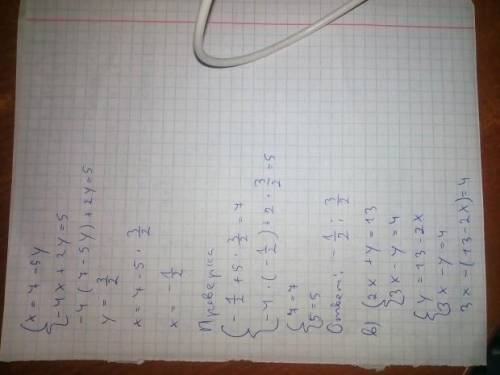 { x = 7 - 5y
{ -4x + 2y = 5
-4(7 - 5y) + 2y = 5
y = 3/2
x = 7 - 5 · 3/2
x = -1/2
Проверка
{ -1/2 + 5 · 3/2 = 7
{ -4 · (-1/2) + 2 · 3/2 = 5
{ 7 = 7
{ 5 = 5
Ответ: -1/2 ; 3/2
в) { 2x + y = 13
{ 3x - y = 4
{ y = 13 - 2x
{ 3x - y = 4
3x - (13 - 2x) = 4